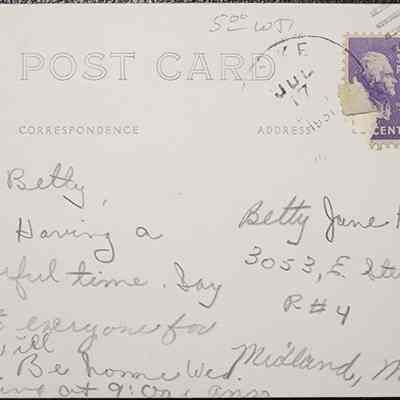 5⁰⁰ WSI
POST CARD
KE
JUL
17
CORRESPONDENCE
ADDRESS
CENT
Betty,
Having a
rful time. Say
everyone for
will
Be home Wed.
at 9:00
Betty Jane
3053, E. Ste
R#4
Midland, M